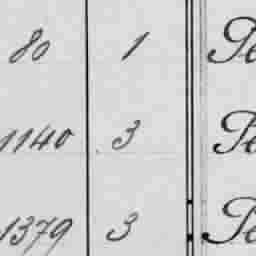 80 1 Pe
1140 3 Pe
1379 3 Pe